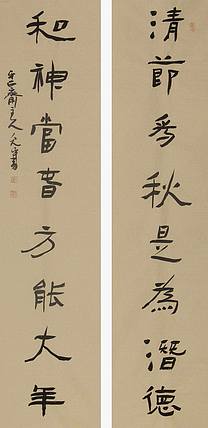 清節為秋是為潛德
和神當春方能大年